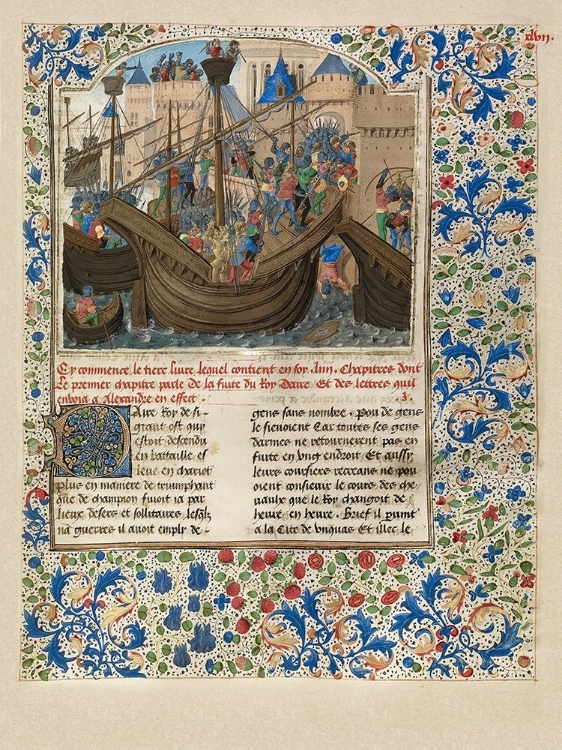 .dvii.
Cy commence le tiers liure lequel contient en soy .xxiiii. Chapitres dont
Le premier chapitre parle de la fuite du Roy Daire Et des lettres quil
enuoia a Alexandre en effect .
Daire Roy de si
grant ost qui
estoit descendu
en bataille es
leue en chariot
plus en maniere de triumphant
que de champion fuioit ia par
lieux desers et sollitaires
na guerres il auoit emply de
gens sans nombre . pou de gens
le sieuoient Car toutes ses gens
darmes ne retournerent pas en
fuite en vng endroit Et aussy
leurs coursiers recreans ne pou
oient consieuir le cours des che
uaulx que le Roy changoit de
heure en heure . Brief il vint
a la Cite de vnquas Et illec le